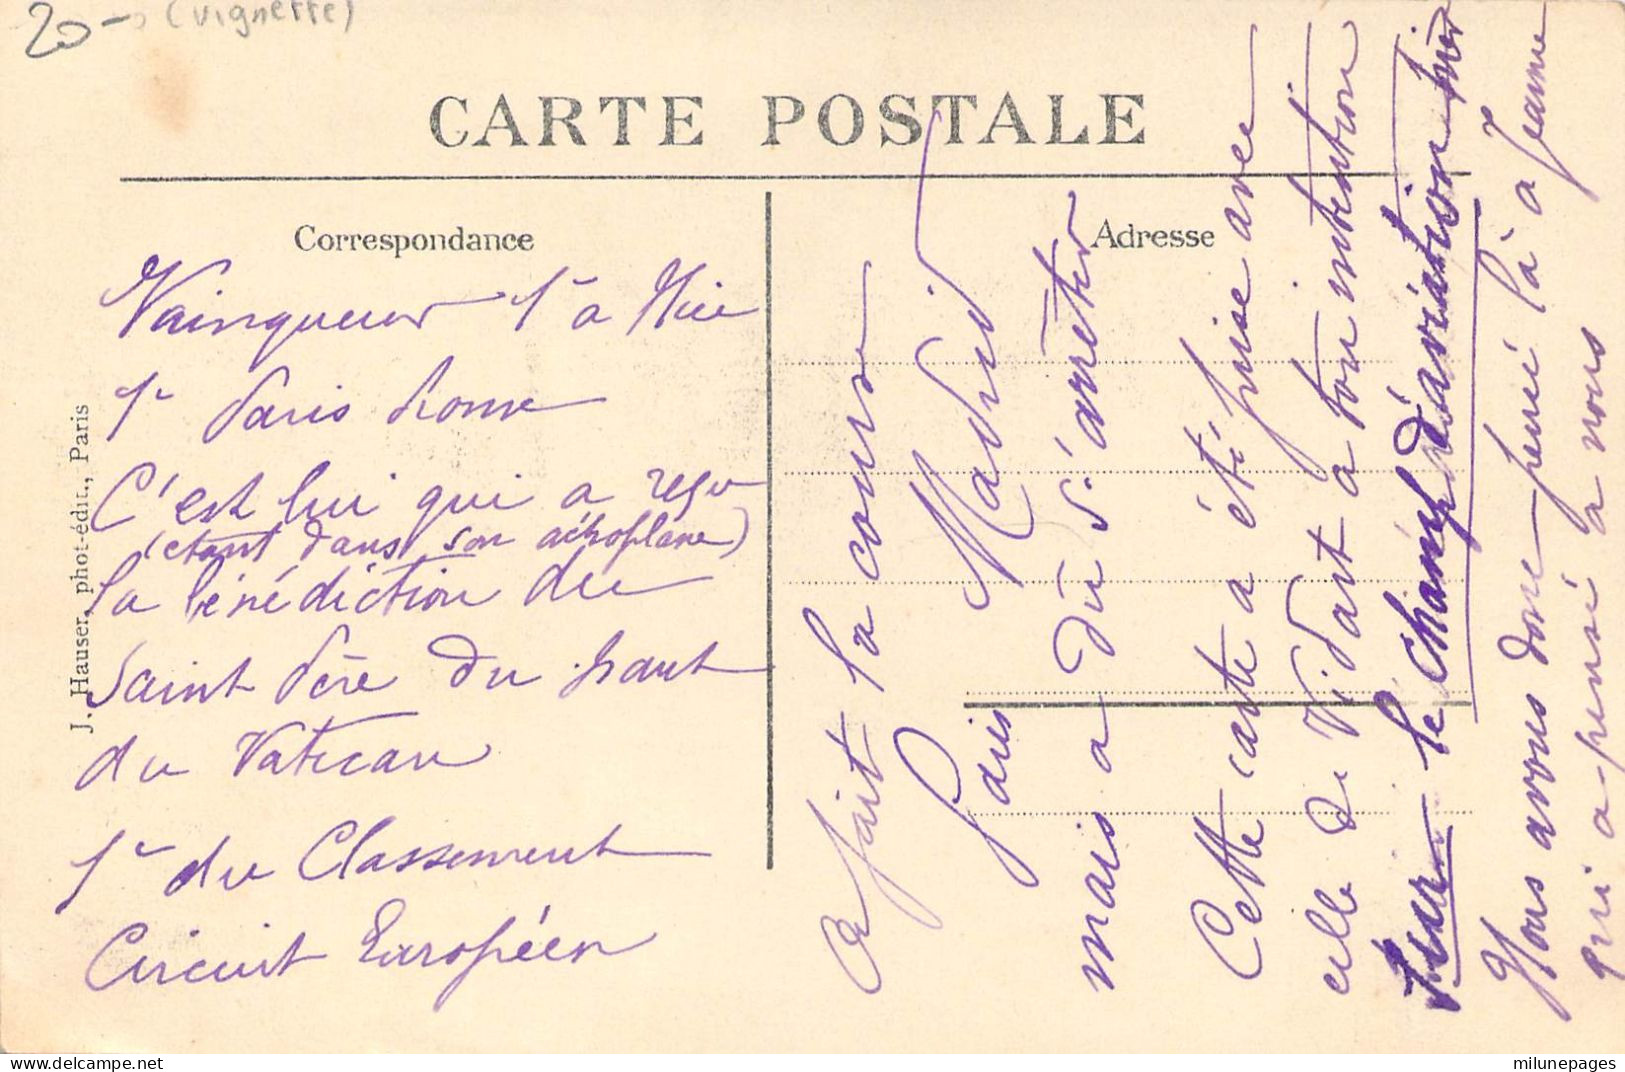 20- (vignette)
CARTE POSTALE
Correspondance
Adresse
J. Hauser, phot-édit., Paris
Vainqueur 1r a Nice
1r Paris Rome
C'est lui qui a reçu
(étant dans son aéroplane)
la bénédiction du
Saint Père du haut
du Vatican
1r du Classement
Circuit Européen
a fait la course
Paris Madrid
mais a dû s'arrêter
Cette carte a été prise avec
celle de Vidart à ton intention
sur le champ d'aviation hier
Nous avons donc pensé là à Jeanne
qui a pensé à nous
delcampe.net
milunepages